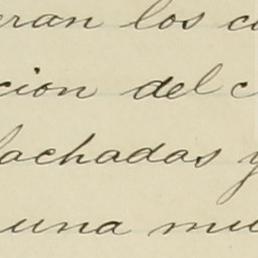 eran los c
cion del c
fachadas y
una mu